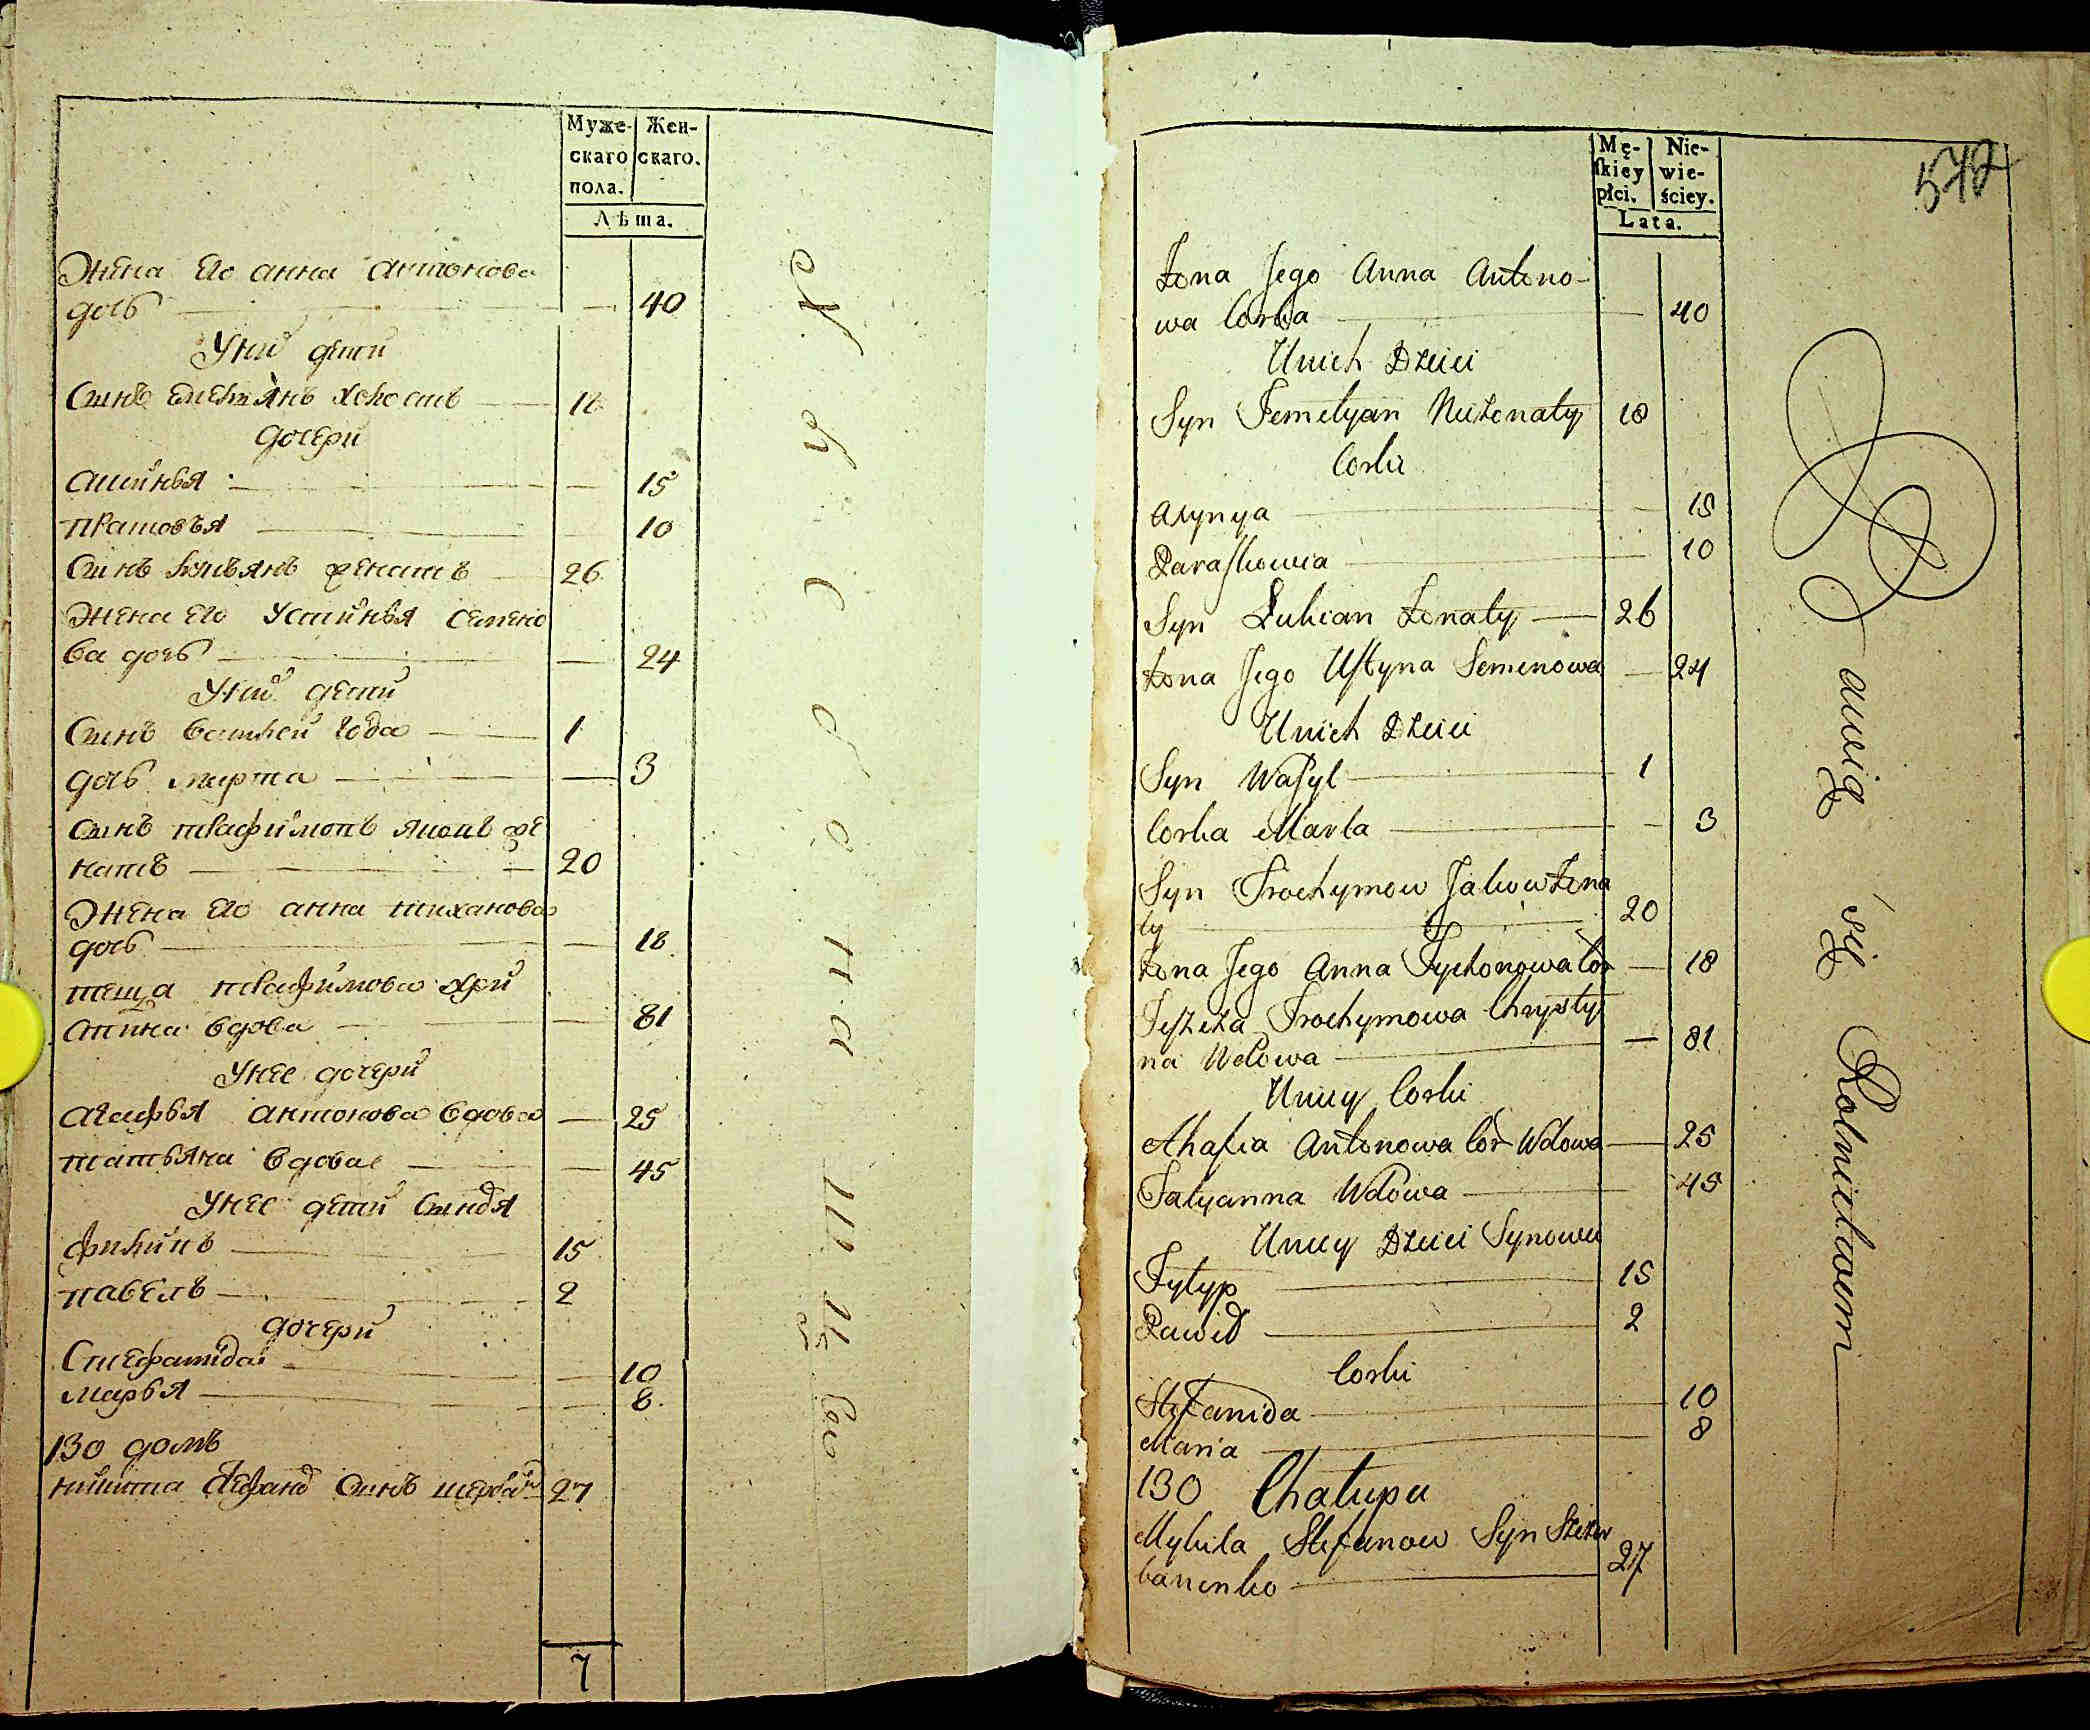 Муже-
скаго
пола.
Жен-
скаго.
Лѣта.
Жена Его анна антонова
дочь 40
Унихъ дети
Синъ Емельянъ холостъ 18
дочери
Аксинья 15
прасковья 10
Синъ лукьянъ женатъ 26
Жена Его устинья семено
ва дочь 24
Унихъ дети
Синъ василей года 1
дочь марта 3
Синъ трафимонъ яковъ же
натъ 20
Жена Его анна тиханова
дочь 18
теща трафимова хри
стина вдова 81
Унее дочери
агафья антонова вдова 25
татьяна вдова 45
Унее дети синовя
филипъ 15
павелъ 2
дочери
Стефанида 10
марья 8
130 домъ
никита стефановъ синъ 27
7
572
Mę-
skiey
płci.
Nie-
wie-
ściey.
Lata.
Żona Jego Anna Antono-
wa Corka 40
Unich Dzieci
Syn Jemelyan Nieżenaty 18
Corki
Axynya 15
Paraskowia 10
Syn Łukian Żonaty 26
Żona Jego Ustyna Semenowa 24
Unich Dzieci
Syn Wasyl 1
Corka Marta 3
Syn Trochymow Jakow Żona
ty 20
Żona Jego Anna Tychonowa Cor 18
Teszcza Trochymowa Chrysty
na Wdowa 81
Uniey Corki
Ahafia Antonowa Cor Wdowa 25
Tatyanna Wdowa 45
Uniey Dzieci Synowie
Fylyp 15
Paweł 2
Corki
Stefanida 10
Maria 8
130 Chałupa
Mykita Stefanow Syn Szczer
banenko 27
awią się Rolnictwem